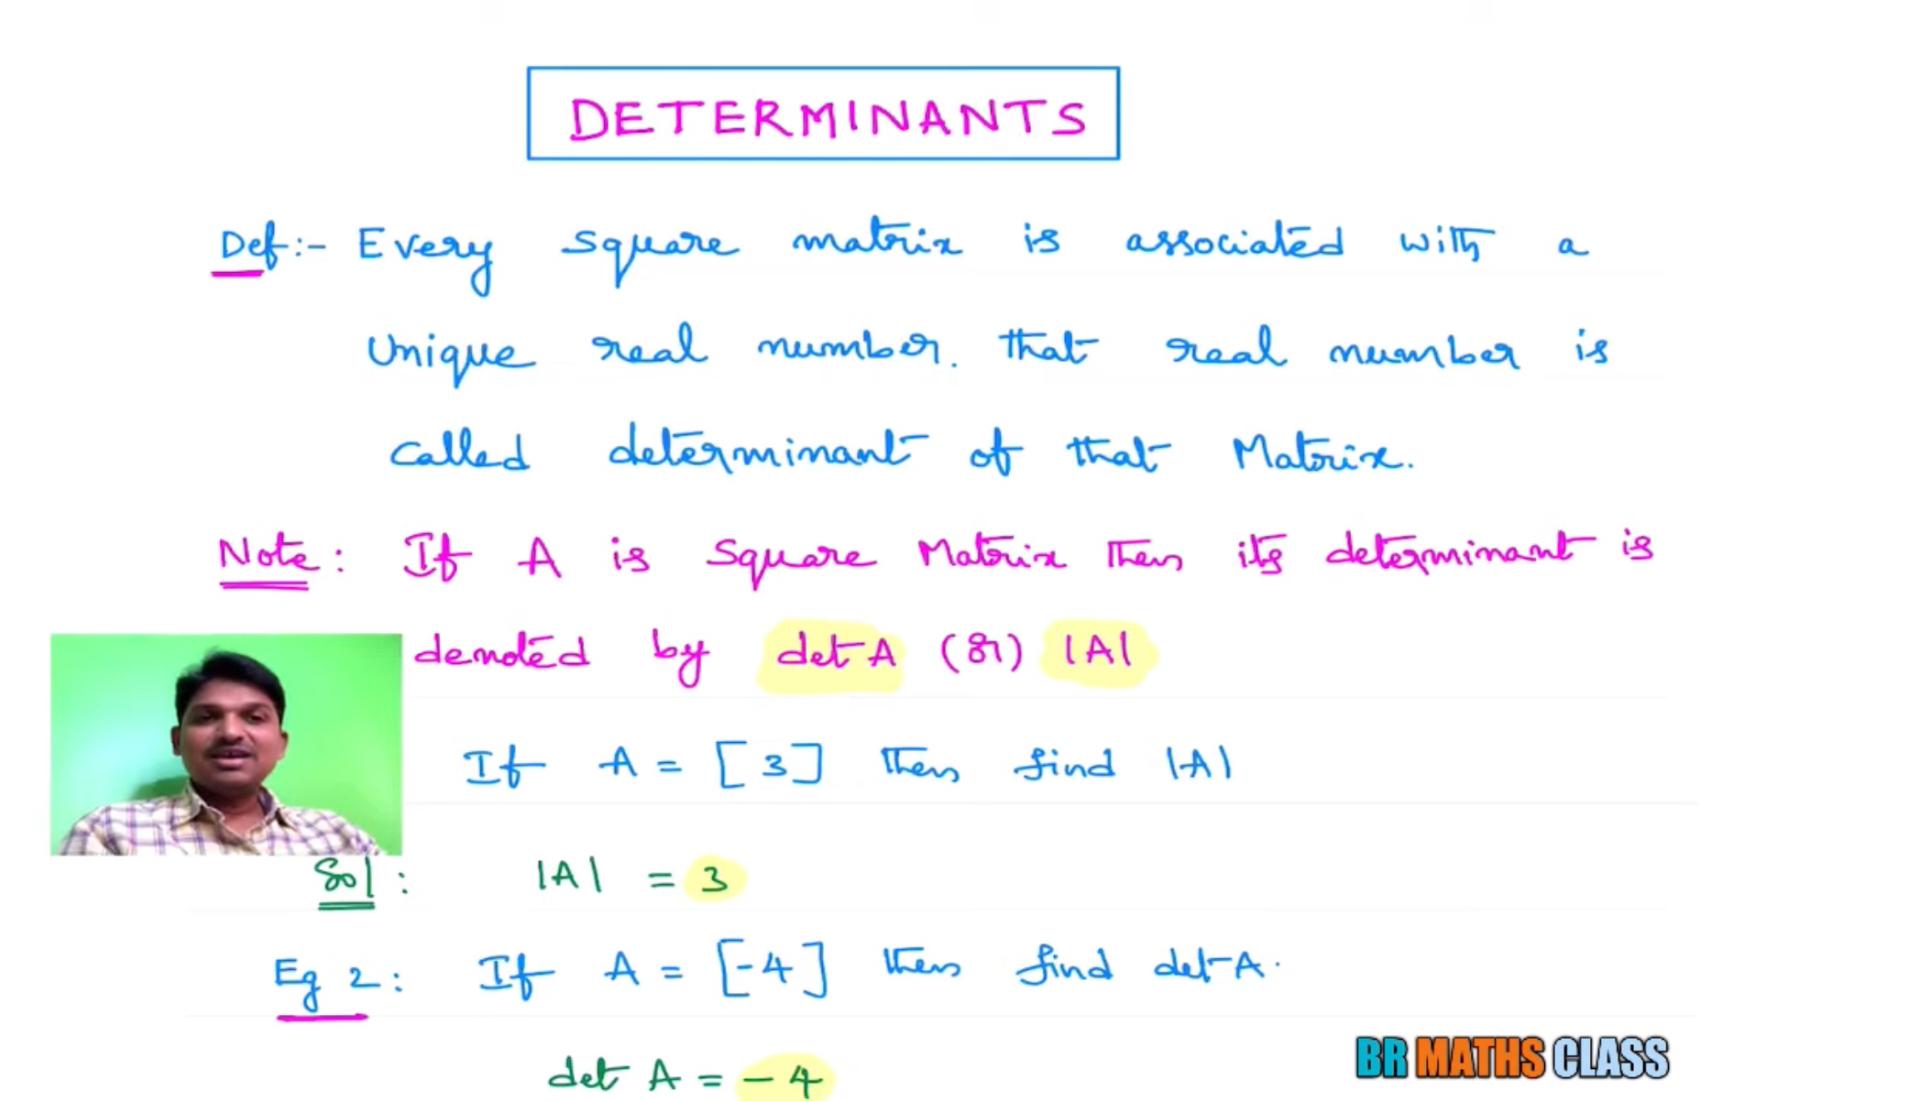 DETERMINANTS
Def:- Every square matrix is associated with a
Unique real number. that real number is
called determinant of that Matrix.
Note: If A is Square Matrix then its determinant is
denoted by det A (or) |A|
If A = [3] then find |A|
Sol: |A| = 3
Eg 2: If A = [-4] then find det A.
det A = -4
BR MATHS CLASS